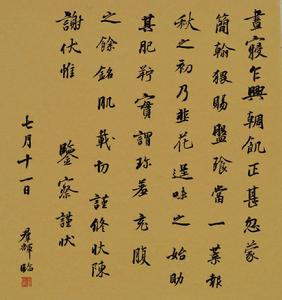 晝寢乍興輖飢正甚忽蒙
簡翰猥賜盤飧當一葉報
秋之初乃韭花逞味之始助
其肥羜實謂珍羞充腹
之餘銘肌載切謹修狀陳
謝伏惟　鑒察謹狀
七月十一日
臨